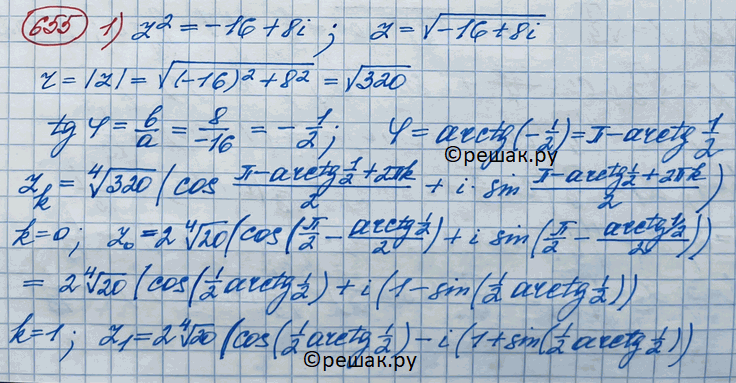 655 1) z² = -16 + 8i ; z = √(-16 + 8i)
r = |z| = √((-16)² + 8²) = √320
tg φ = b/a = 8/-16 = -1/2 ; φ = arctg(-1/2) = π - arctg 1/2
©решак.ру
z_k = ⁴√320 (cos (π - arctg 1/2 + 2πk)/2 + i · sin (π - arctg 1/2 + 2πk)/2)
k=0; z₀ = 2 ⁴√20 (cos(π/2 - (arctg 1/2)/2) + i sin(π/2 - (arctg 1/2)/2))
= 2 ⁴√20 (cos(1/2 arctg 1/2) + i (1 - sin(1/2 arctg 1/2))
k=1; z₁ = 2 ⁴√20 (cos(1/2 arctg 1/2) - i (1 + sin(1/2 arctg 1/2))
©решак.ру